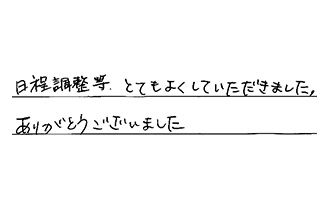 日程調整等、とてもよくしていただきました。
ありがとうございました